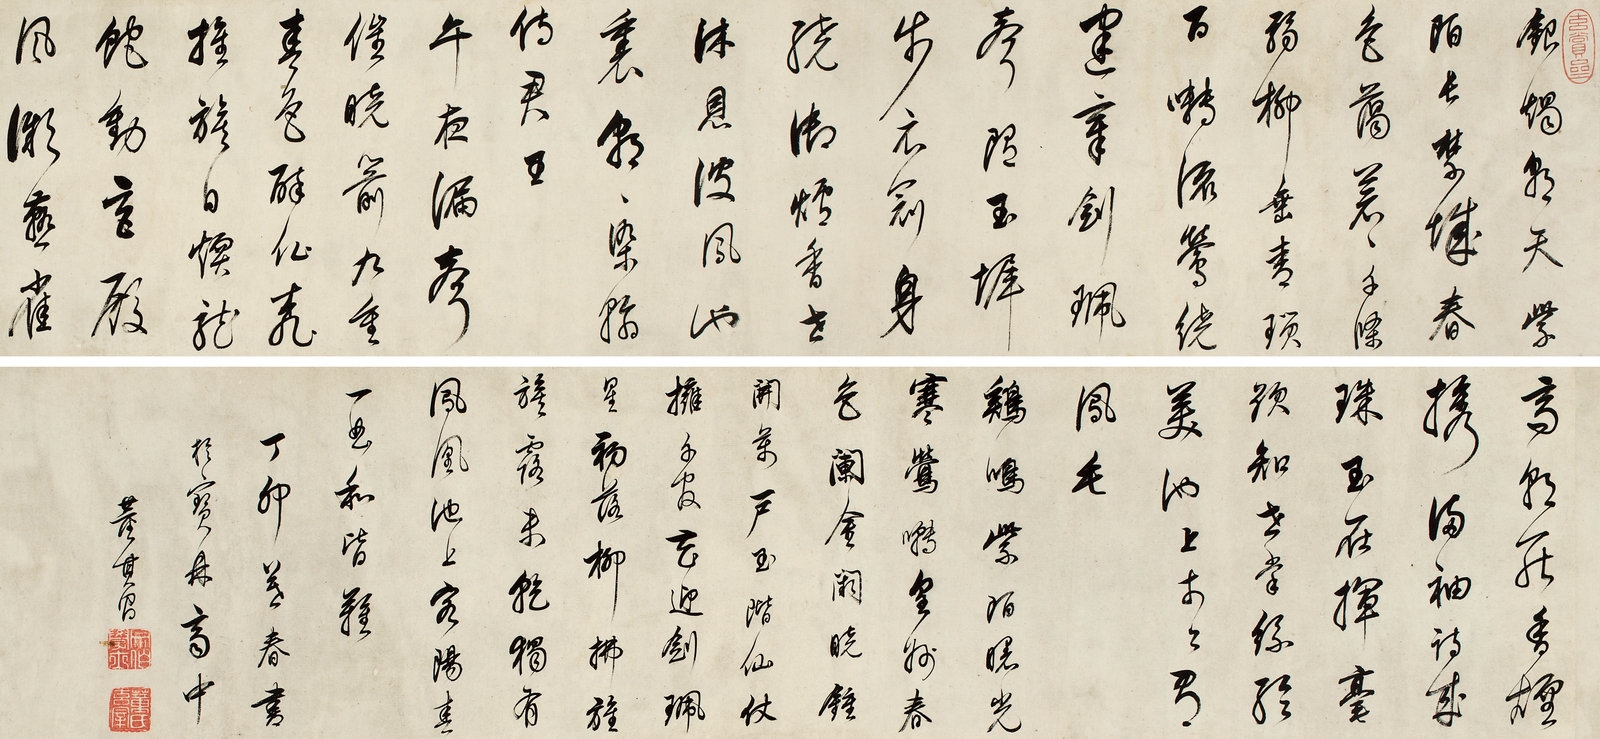 銀燭朝天紫
陌長禁城春
色藹蒼〻千條
弱柳垂青瑣
百囀流鶯繞
建章劍珮
聲隨玉墀
步衣冠身
繞御爐香共
沐恩波鳳池
裏朝〻染翰
侍君王
午夜漏聲
催曉箭九重
春色醉仙桃
旌旗日煖龍
蛇動宮殿
風微燕雀
高朝罷香煙
携滿袖詩成
珠玉在揮毫
欲知世掌絲綸
美池上于今有
鳳毛
鷄鳴紫陌曙光
寒鶯囀皇州春
色闌金闕曉鐘
開萬戶玉階仙仗
擁千官花迎劍珮
星初落柳拂旌
旗露未乾獨有
鳳凰池上客陽春
一曲和皆難
丁卯暮春書
於寶鼎齋中
董其昌